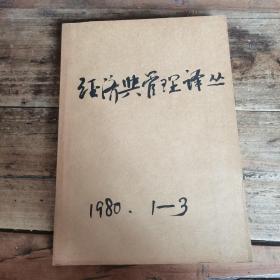 经济与管理译丛
1980．1—3